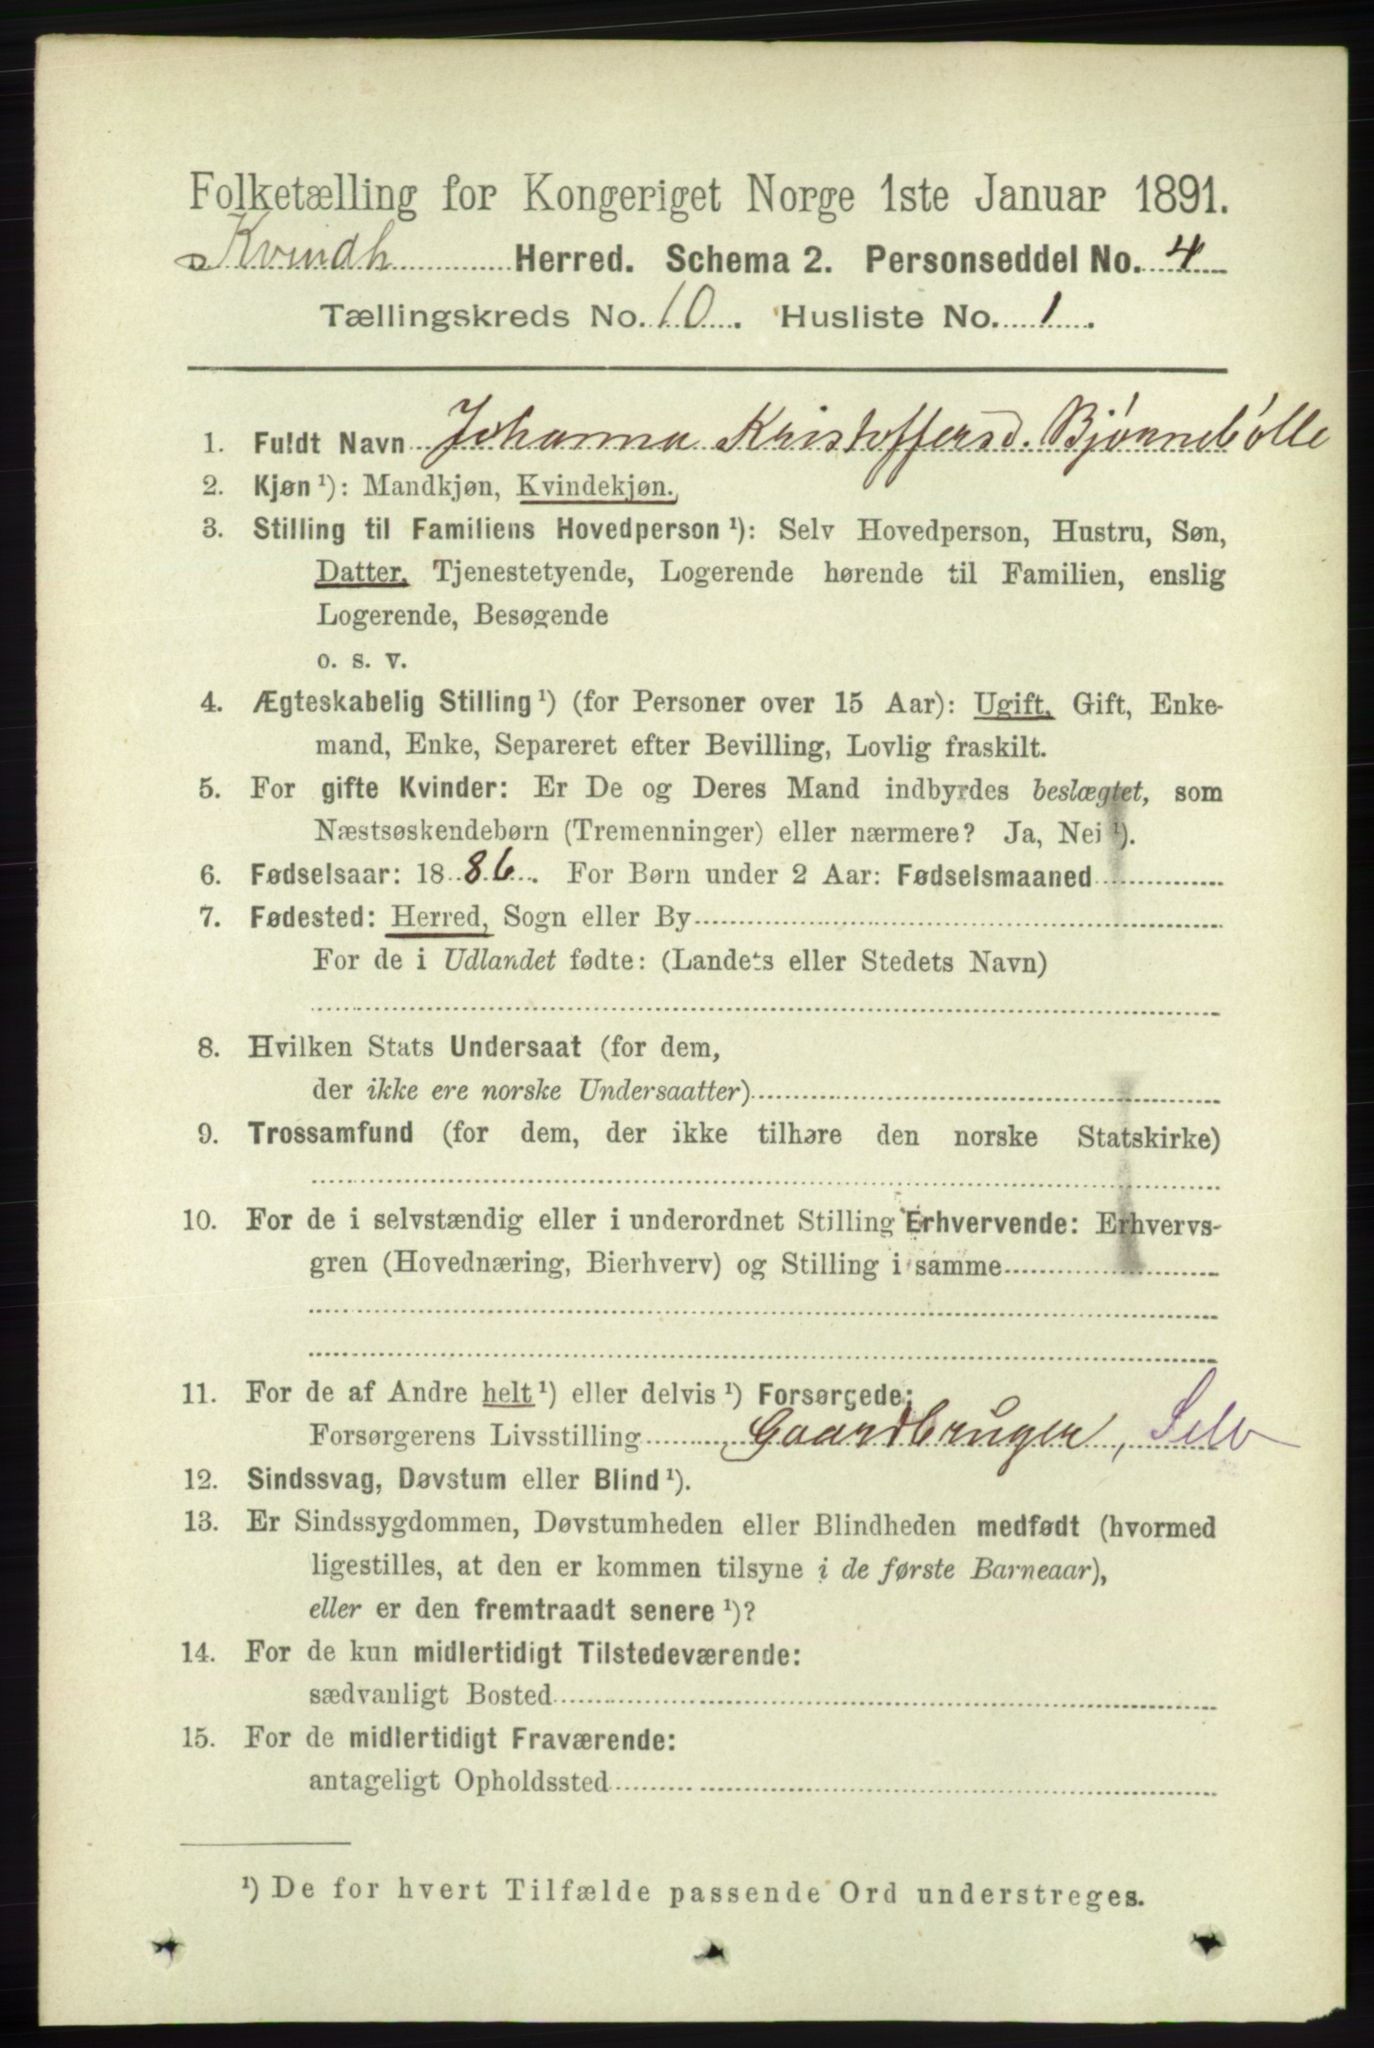 Folketælling for Kongeriget Norge 1ste Januar 1891.
Kvindh Herred. Schema 2. Personseddel No. 4
Tællingskreds No. 10. Husliste No. 1.
1. Fuldt Navn Johanna Kristoffersd. Bjönnebölle
2. Kjøn ¹): Mandkjøn, Kvindekjøn.
3. Stilling til Familiens Hovedperson ¹): Selv Hovedperson, Hustru, Søn,
Datter, Tjenestetyende, Logerende hørende til Familien, enslig
Logerende, Besøgende
o. s. v.
4. Ægteskabelig Stilling ¹) (for Personer over 15 Aar): Ugift, Gift, Enke-
mand, Enke, Separeret efter Bevilling, Lovlig fraskilt.
5. For gifte Kvinder: Er De og Deres Mand indbyrdes beslægtet, som
Næstsøskendebørn (Tremenninger) eller nærmere? Ja, Nei ¹).
6. Fødselsaar: 1886. For Børn under 2 Aar: Fødselsmaaned
7. Fødested: Herred, Sogn eller By
For de i Udlandet fødte: (Landets eller Stedets Navn)
8. Hvilken Stats Undersaat (for dem,
der ikke ere norske Undersaatter)
9. Trossamfund (for dem, der ikke tilhøre den norske Statskirke)
10. For de i selvstændig eller i underordnet Stilling Erhvervende: Erhvervs-
gren (Hovednæring, Bierhverv) og Stilling i samme
11. For de af Andre helt ¹) eller delvis ¹) Forsørgede:
Forsørgerens Livsstilling Gaardbruger, Selv
12. Sindssvag, Døvstum eller Blind ¹).
13. Er Sindssygdommen, Døvstumheden eller Blindheden medfødt (hvormed
ligestilles, at den er kommen tilsyne i de første Barneaar),
eller er den fremtraadt senere ¹)?
14. For de kun midlertidigt Tilstedeværende:
sædvanligt Bosted
15. For de midlertidigt Fraværende:
antageligt Opholdssted
¹) De for hvert Tilfælde passende Ord understreges.